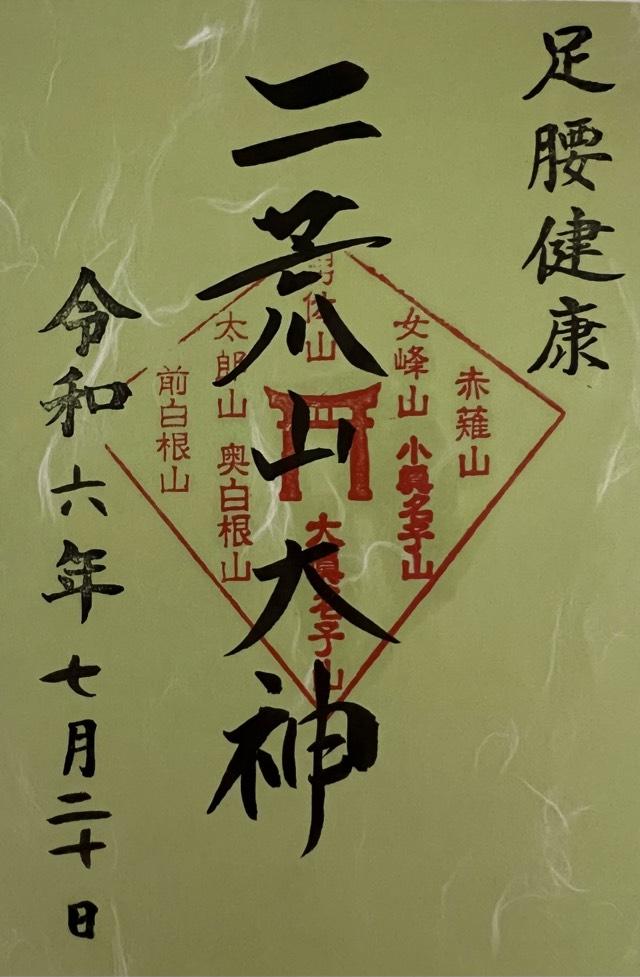 足腰健康
二荒山大神
令和六年七月二十日
赤薙山
女峰山
小真名子山
男体山
大真名子山
太郎山
奥白根山
前白根山